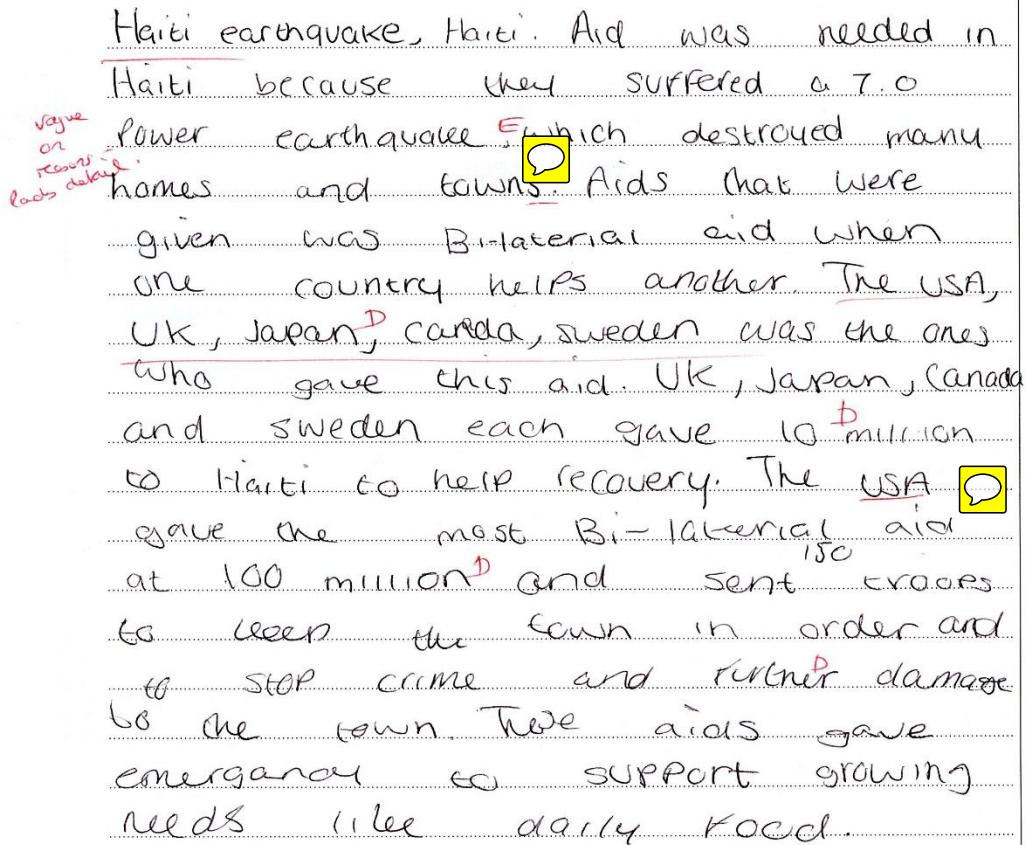 Haiti earthquake, Haiti. Aid was needed in
Haiti because they suffered a 7.0
vague
on
reasons
lacks detail.
Power earthquake, E which destroyed many
homes and towns. Aids that were
given was Bi-laterial aid when
one country helps another. The USA,
UK, Japan, D canada, sweden was the ones
who gave this aid. UK, Japan, Canada
and sweden each gave 10 D million
to Haiti to help recovery. The USA
gave the most Bi-laterial aid
at 100 million D and sent 150 troops
to keep the town in order and
to stop crime and further D damage
to the town. These aids gave
emergancy to support growing
needs like daily food.